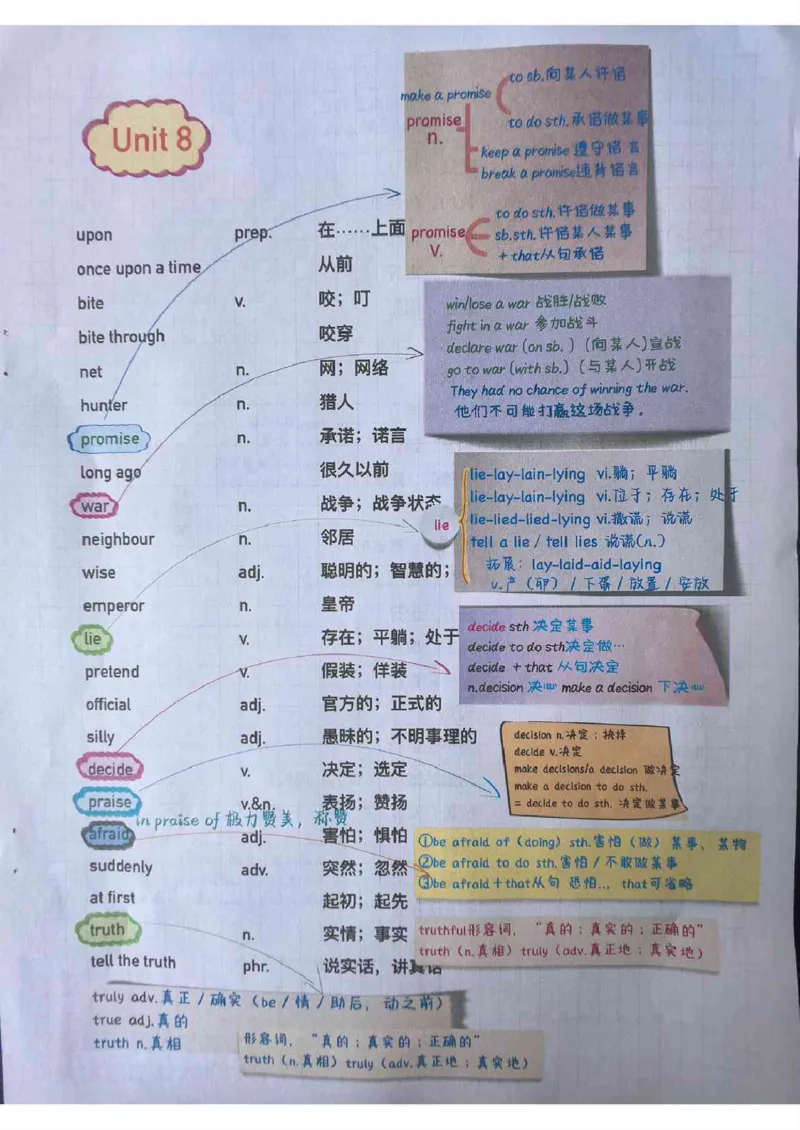 Unit 8
make a promise
to sb.向某人许偣
to do sth.承偣做某事
promise n.
keep a promise 遵守偣言
break a promise违背偣言
promise v.
to do sth.许偣做某事
sb.sth.许偣某人某事
+that从句承偣
upon prep. 在……上面
once upon a time 从前
bite v. 咬；叮
bite through 咬穿
net n. 网；网络
hunter n. 猎人
promise n. 承诺；诺言
long ago 很久以前
war n. 战争；战争状态
neighbour n. 邻居
wise adj. 聪明的；智慧的；
emperor n. 皇帝
lie v. 存在；平躺；处于
pretend v. 假装；佯装
official adj. 官方的；正式的
silly adj. 愚昧的；不明事理的
decide v. 决定；选定
praise v.&n. 表扬；赞扬
in praise of 极力赞美，称赞
afraid adj. 害怕；惧怕
suddenly adv. 突然；忽然
at first 起初；起先
truth n. 实情；事实
tell the truth phr. 说实话，讲真话
win/lose a war 战胜/战败
fight in a war 参加战斗
declare war (on sb. ) (向某人)宣战
go to war (with sb.) (与某人)开战
They had no chance of winning the war.
他们不可能打赢这场战争。
lie
lie-lay-lain-lying vi.躺；平躺
lie-lay-lain-lying vi.位于；存在；处于
lie-lied-lied-lying vi.撒谎；说谎
tell a lie / tell lies 说谎(n.)
拓展：lay-laid-aid-laying
v.产（卵）/下蛋/放置/安放
decide sth 决定某事
decide to do sth决定做…
decide + that 从句决定
n.decision 决心 make a decision 下决心
decision n.决定；抉择
decide v.决定
make decisions/a decision 做决定
make a decision to do sth.
= decide to do sth. 决定做某事
①be afraid of (doing) sth.害怕（做）某事、某物
②be afraid to do sth.害怕/不敢做某事
③be afraid+that从句 恐怕... that可省略
truthful形容词，“真的；真实的；正确的”
truth (n.真相) truly (adv.真正地；真实地)
truly adv.真正/确实（be/情/助后，动之前）
true adj.真的
truth n.真相
形容词，“真的；真实的；正确的”
truth (n.真相) truly (adv.真正地；真实地)